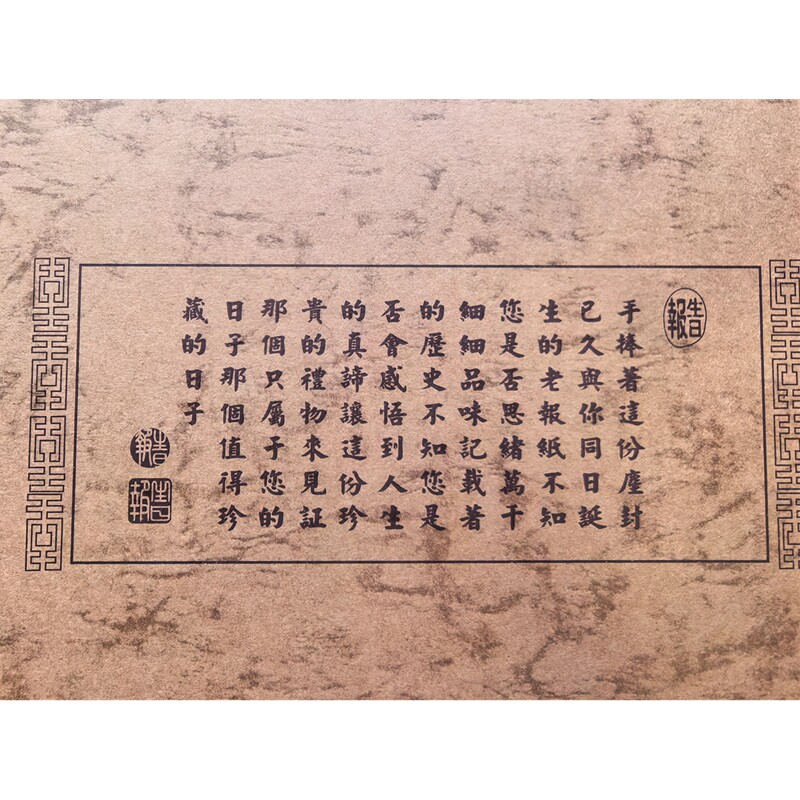 手捧著這份塵封
已久與你同日誕
生的老報紙不知
您是否思緒萬千
細細品味記載著
的歷史不知您是
否會感悟到人生
的真諦讓這份珍
貴的禮物來見証
那個只屬于您的
日子那個值得珍
藏的日子